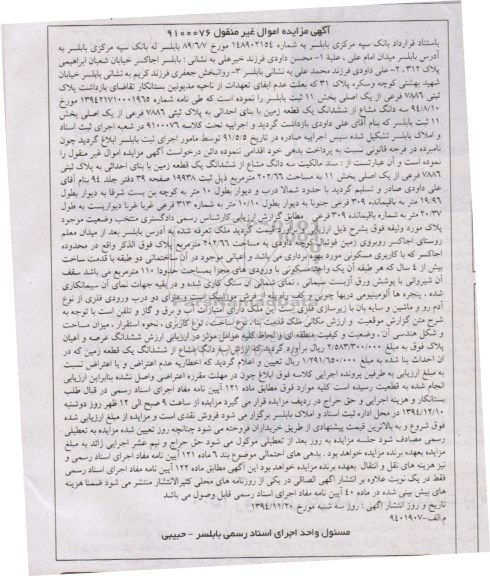 آگهی مزایده اموال غیر منقول ۹۱۰۰۰۷۶
باستناد قرارداد بانک سپه مرکزی بابلسر به شماره ۱۴۸۹۰۲۱۵۴ مورخ ۸۹/۶/۷ بابلسر له بانک سپه مرکزی بابلسر به
آدرس بابلسر میدان امام علی ، علیه ۱- محسن داودی فرزند خیرعلی به نشانی : بابلسر اجاکسر خیابان شعبان ابراهیمی
پلاک ۳۱۲ ، ۲- علی داودی فرزند محمد علی به نشانی بابلسر ۳- روانبخش جعفری فرزند کریم به نشانی بابلسر خیابان
شهید بهشتی کوچه وسکره پلاک ۳۱ که بعلت عدم ایفای تعهدات از ناحیه مدیونین بستانکار تقاضای بازداشت پلاک
ثبتی ۷۸۸۶ فرعی از یک اصلی بخش ۱۱ ثبت بابلسر را نموده است که طی نامه شماره ۱۳۹۴۲۱۷۱۰۰۰۱۹۶۵ مورخ
۹۴/۸/۱۰ سه دانگ مشاع از ششدانگ یک قطعه زمین با بنای احداثی به پلاک ثبتی ۷۸۸۶ فرعی از یک اصلی بخش
۱۱ ثبت بابلسر که بنام آقای علی داودی بازداشت گردید و اجراییه تحت کلاسه ۹۱۰۰۰۷۶ در شعبه اجرای ثبت اسناد
و املاک بابلسر تشکیل شده سپس اجراییه صادره در تاریخ ۹۱/۵/۵ توسط مامور اجرای ثبت بابلسر ابلاغ گردید چون
نامبرده در فرجه قانونی نسبت به پرداخت بدهی خود اقدامی ننموده دائن درخواست آگهی مزایده اموال غیر منقول را
نموده است و آن عبارتست از : سند مالکیت سه دانگ مشاع از ششدانگ یک قطعه زمین با بنای احداثی به پلاک ثبتی
۷۸۸۶ فرعی از یک اصلی بخش ۱۱ به مساحت ۲۰۲/۶۶ مترمربع ذیل ثبت ۱۹۹۳۸ صفحه ۳۹ دفتر جلد ۹۴ بنام آقای
علی داودی صادر و تسلیم گردید با حدود شمالا درب و دیوار بطول ۱۰ متر به کوچه بن بست شرقا به دیوار بطول
۱۹/۹۶ متر به باقیمانده ۳۰۹ فرعی جنوبا به دیوار بطول ۱۰/۱۰ متر به شماره ۳۱۳ فرعی غربا غربا دیواریست به طول
۲۰/۳۷ متر به شماره باقیمانده ۳۰۹ فرعی . مطابق گزارش ارزیابی کارشناس رسمی دادگستری منتخب وضعیت موجود
پلاک مورد وثیقه فوق بشرح ذیل ارزیابی و برآورد قیمت گردید ملک تعرفه شده به آدرس بابلسر بعد از میدان معلم
روستای اجاکسر روبروی زمین فوتبال کوچه داودی به مساحت ۲۰۲/۶۶ مترمربع پلاک فوق الذکر واقع در محدوده
اجاکسر که با کاربری مسکونی مورد بهره برداری می باشد و اعیانی موجود در آن ساختمانی دو طبقه با قدمت ساخت
بیش از ۴ سال که هر طبقه آن یک واحد مسکونی با ورودی های مجزا بمساحت حدودا ۱۱۰ مترمربع می باشد سقف
آن شیروانی با پوشش ورق آزبست سیمانی ، نمای شمالی آن سنگ کاری شده و در بقیه جهات نمای آن سیمانکاری
شده ، پنجره ها آلومینیومی دربها چوبی و کف با پله از فرش موزاییک است و دارای دو درب ورودی فلزی از نوع
آدم رو و ماشین و سایه بان با زیرسازی فلزی است این ملک دارای امتیازات آب و برق و گاز و تلفن است با توجه به
شرح متن گزارش موقعیت و ارزش مکانی ملک قدمت بنا ، نوع ساخت ، نوع کاربری ، نحوه استقرار ، میزان مساحت
و شکل هندسی آن ، وضعیت و کیفیت منطقه ای و لحاظ کلیه عوامل موثر در ارزیابی ارزش ششدانگ عرصه و اعیان
پلاک فوق به مبلغ ۲/۵۸۳/۳۰۰/۰۰۰ ریال برآورد گردید که ارزش سه دانگ مشاع از ششدانگ یک قطعه زمین که در
ان احداث بنا شده به مبلغ ۱/۲۹۱/۶۵۰/۰۰۰ ریال تعیین و اعلام گردید که اخطاریه عدم اعتراض و یا اعتراض نسبت
به مبلغ ارزیابی به طرفین پرونده اجرایی کلاسه فوق ابلاغ چون در مهلت مقرره اعتراضی وصل نشده بنابراین ارزیابی
انجام شده به قطعیت رسیده است کلیه موارد فوق مطابق ماده ۱۲۱ آیین نامه مفاد اجرای اسناد رسمی در قبال طلب
بستانکار و هزینه اجرایی و حق حراج در ردیف مزایده قرار می گیرد مزایده از ساعت ۹ صبح الی ۱۲ ظهر روز دوشنبه
۱۳۹۴/۱۲/۱۰ در محل اداره ثبت اسناد و املاک بابلسر برگزار می شود فروش نقدی است و مزایده از مبلغ ارزیابی شده
فوق شروع و به بالاترین قیمت پیشنهادی از طریق خریداران فروخته می شود چنانچه روز تعیین شده مزایده به تعطیلی
رسمی مصادف شود جلسه مزایده به روز بعد از تعطیلی موکول می شود حق حراج و نیم عشر اجرایی زائد به مبلغ
مزایده بعهده برنده مزایده خواهد بود . بدهی های احتمالی موضوع بند ۶ ماده ۱۲۱ آیین نامه مفاد اجرای اسناد رسمی و
نیز هزینه های نقل و انتقال بعهده برنده مزایده خواهد بود این آگهی مطابق ماده ۱۲۲ آیین نامه مفاد اجرای اسناد رسمی
فقط در یک نوبت علاوه بر انتشار آگهی الصاقی در یکی از روزنامه های محلی کثیرالانتشار منتشر می شود ضمنا هزینه
های پیش بینی شده در ماده ۴۰ آیین نامه مفاد اجرای اسناد رسمی قابل وصول می باشد
تاریخ و روز انتشار آگهی : روز سه شنبه مورخ ۱۳۹۴/۱۱/۲۰
م.الف-۹۴۰۱۹۰۷
مسئول واحد اجرای اسناد رسمی بابلسر - حبیبی